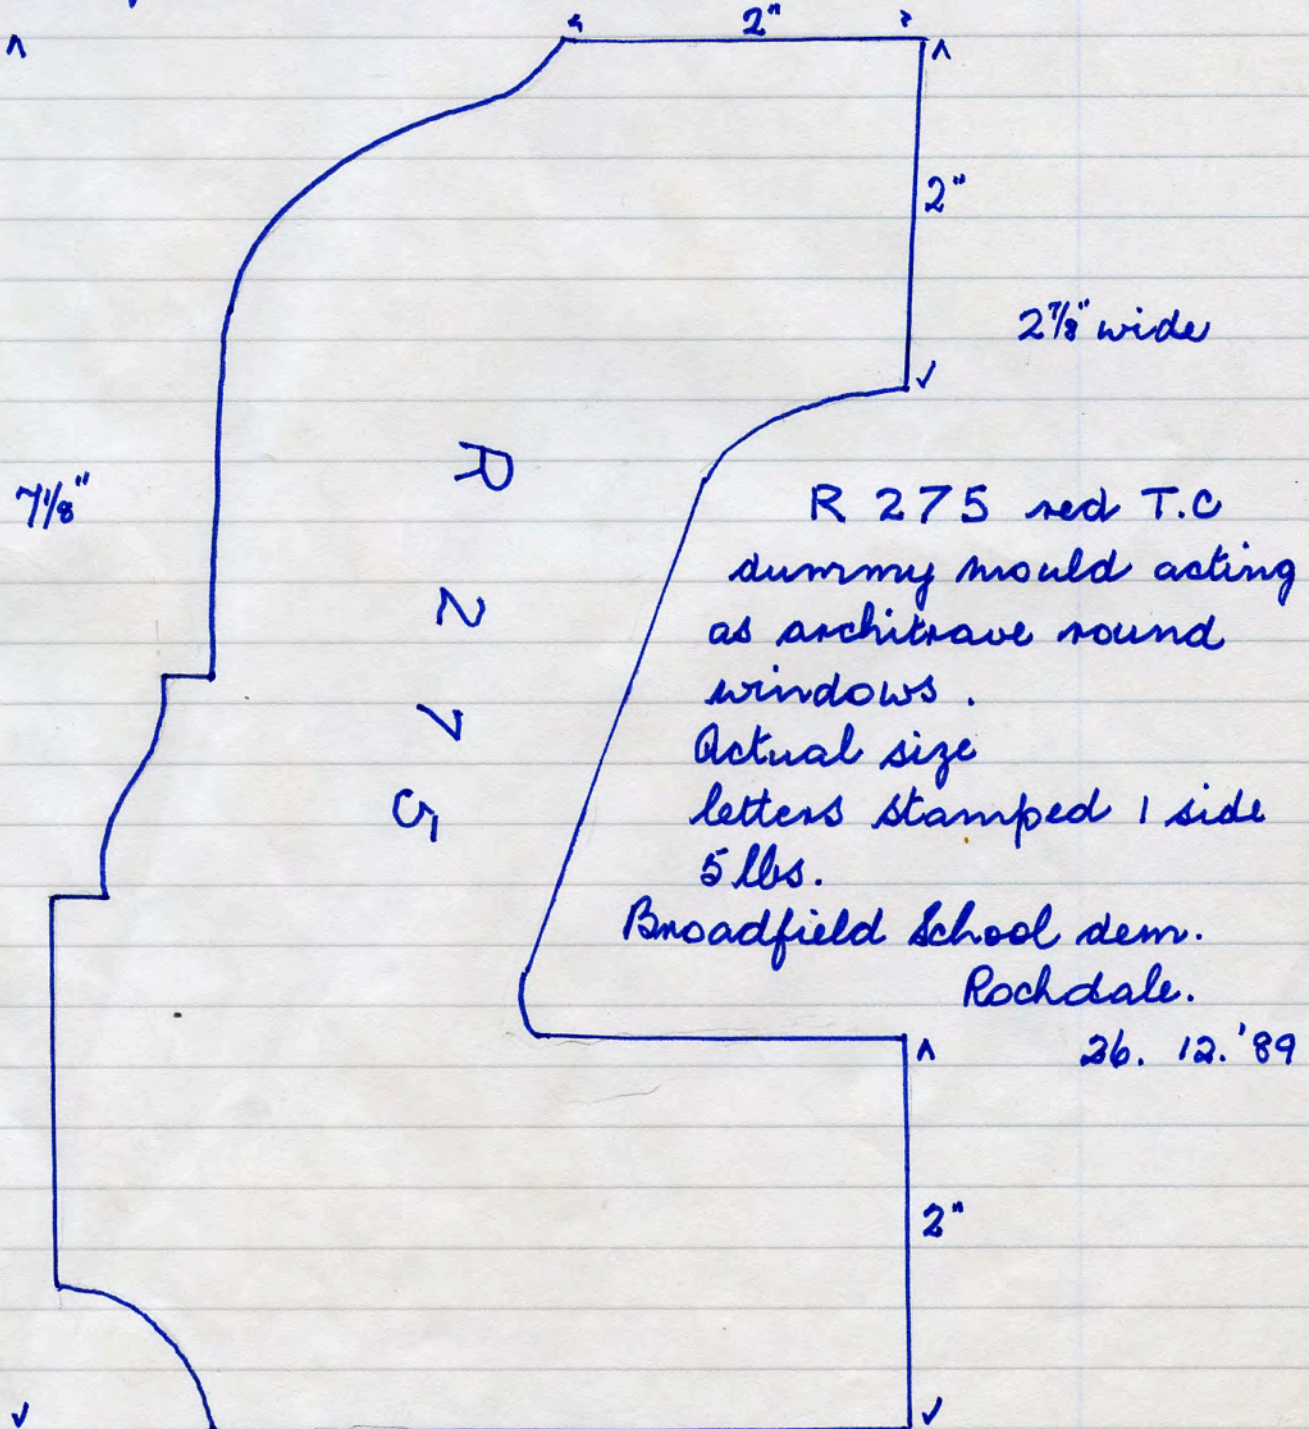 2"
2"
2⅞" wide
7⅛"
R 275
R 275 red T.C
dummy mould acting
as architrave round
windows.
Actual size
letters stamped 1 side
5 lbs.
Broadfield School dem.
Rochdale.
26. 12. '89
2"